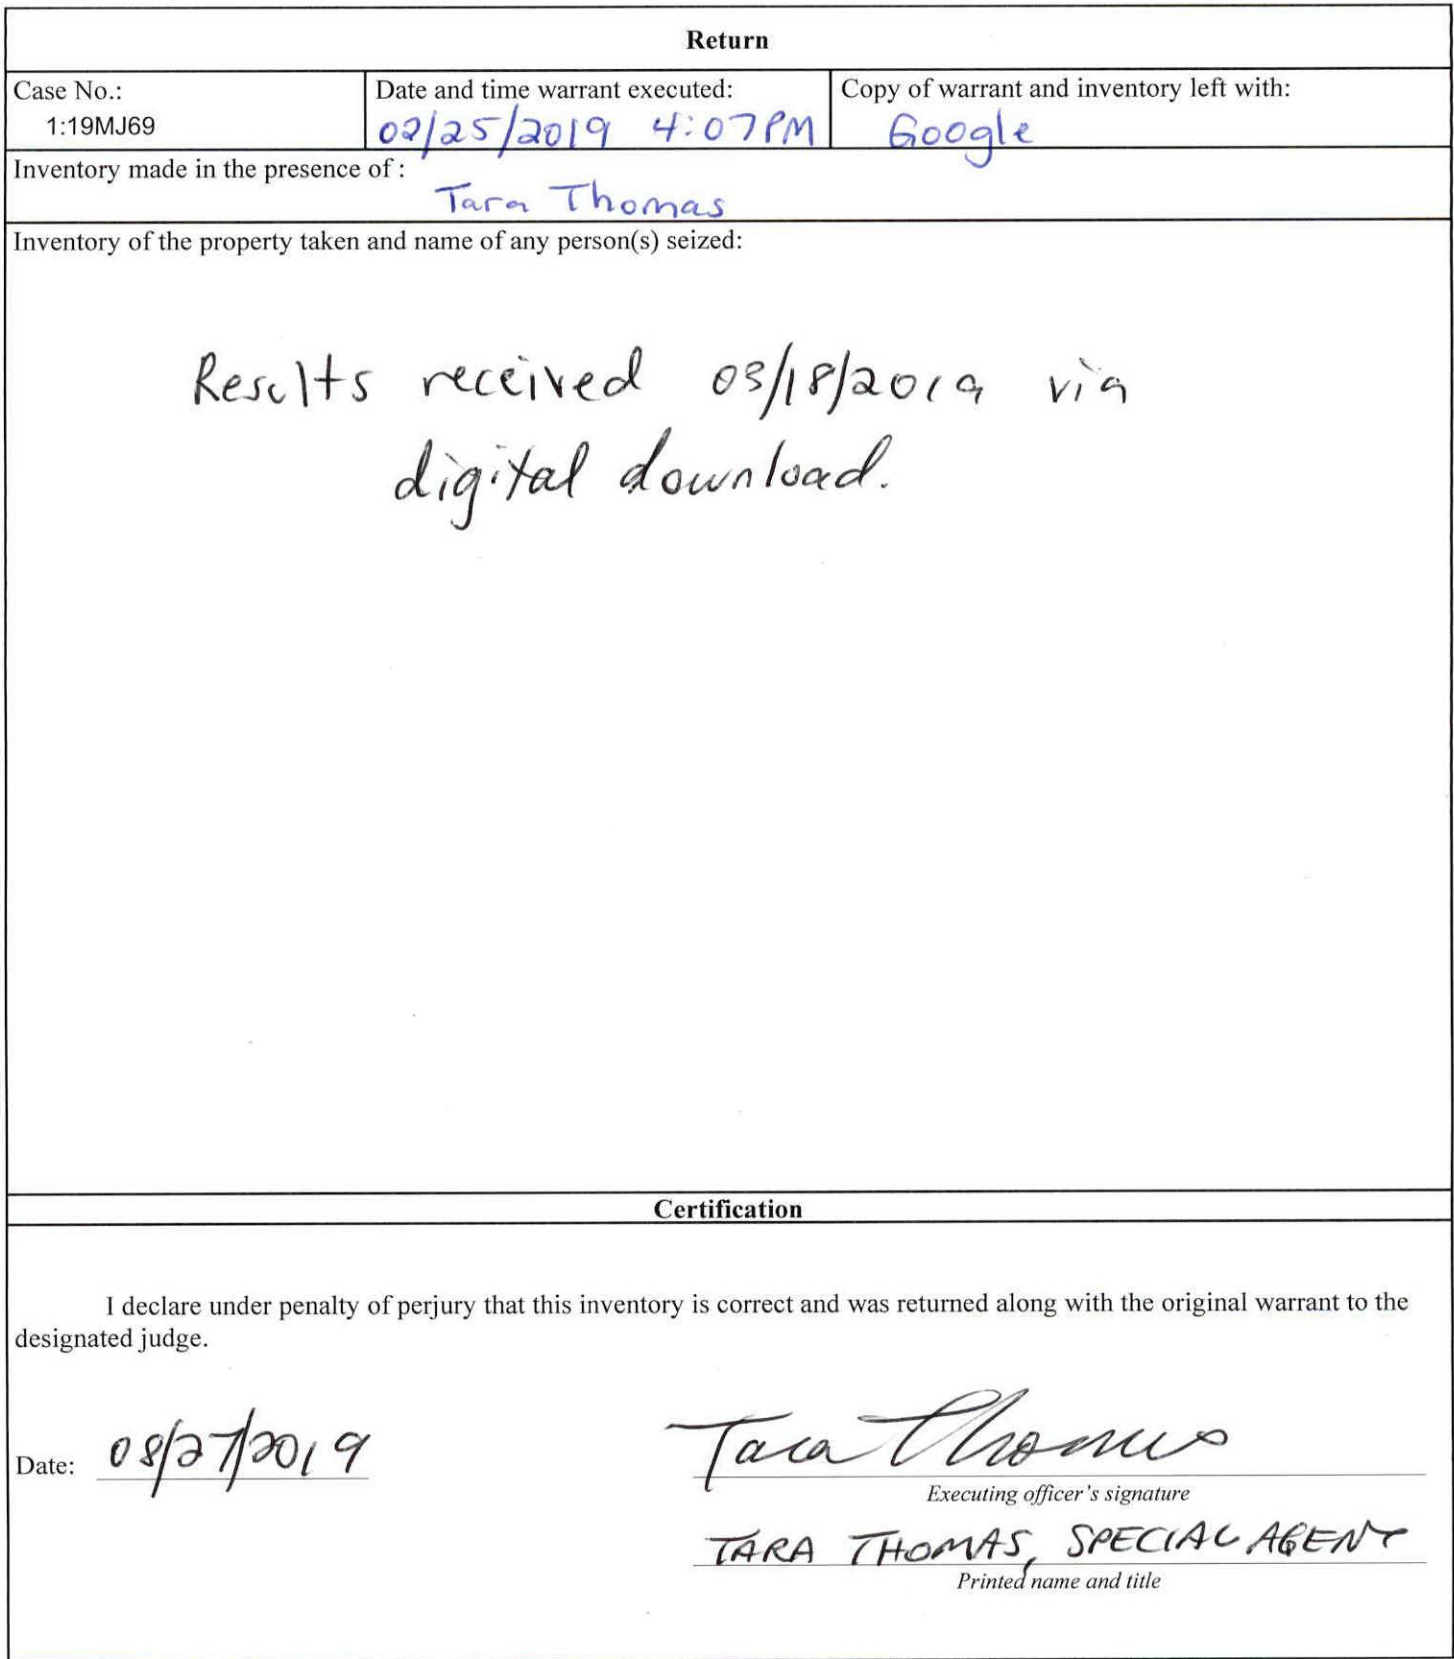 Return
Case No.:
1:19MJ69
Date and time warrant executed:
02/25/2019 4:07PM
Copy of warrant and inventory left with:
Google
Inventory made in the presence of :
Tara Thomas
Inventory of the property taken and name of any person(s) seized:
Results received 03/18/2019 via
digital download.
Certification
I declare under penalty of perjury that this inventory is correct and was returned along with the original warrant to the
designated judge.
Date: 08/27/2019
Tara Thomas
Executing officer's signature
TARA THOMAS, SPECIAL AGENT
Printed name and title